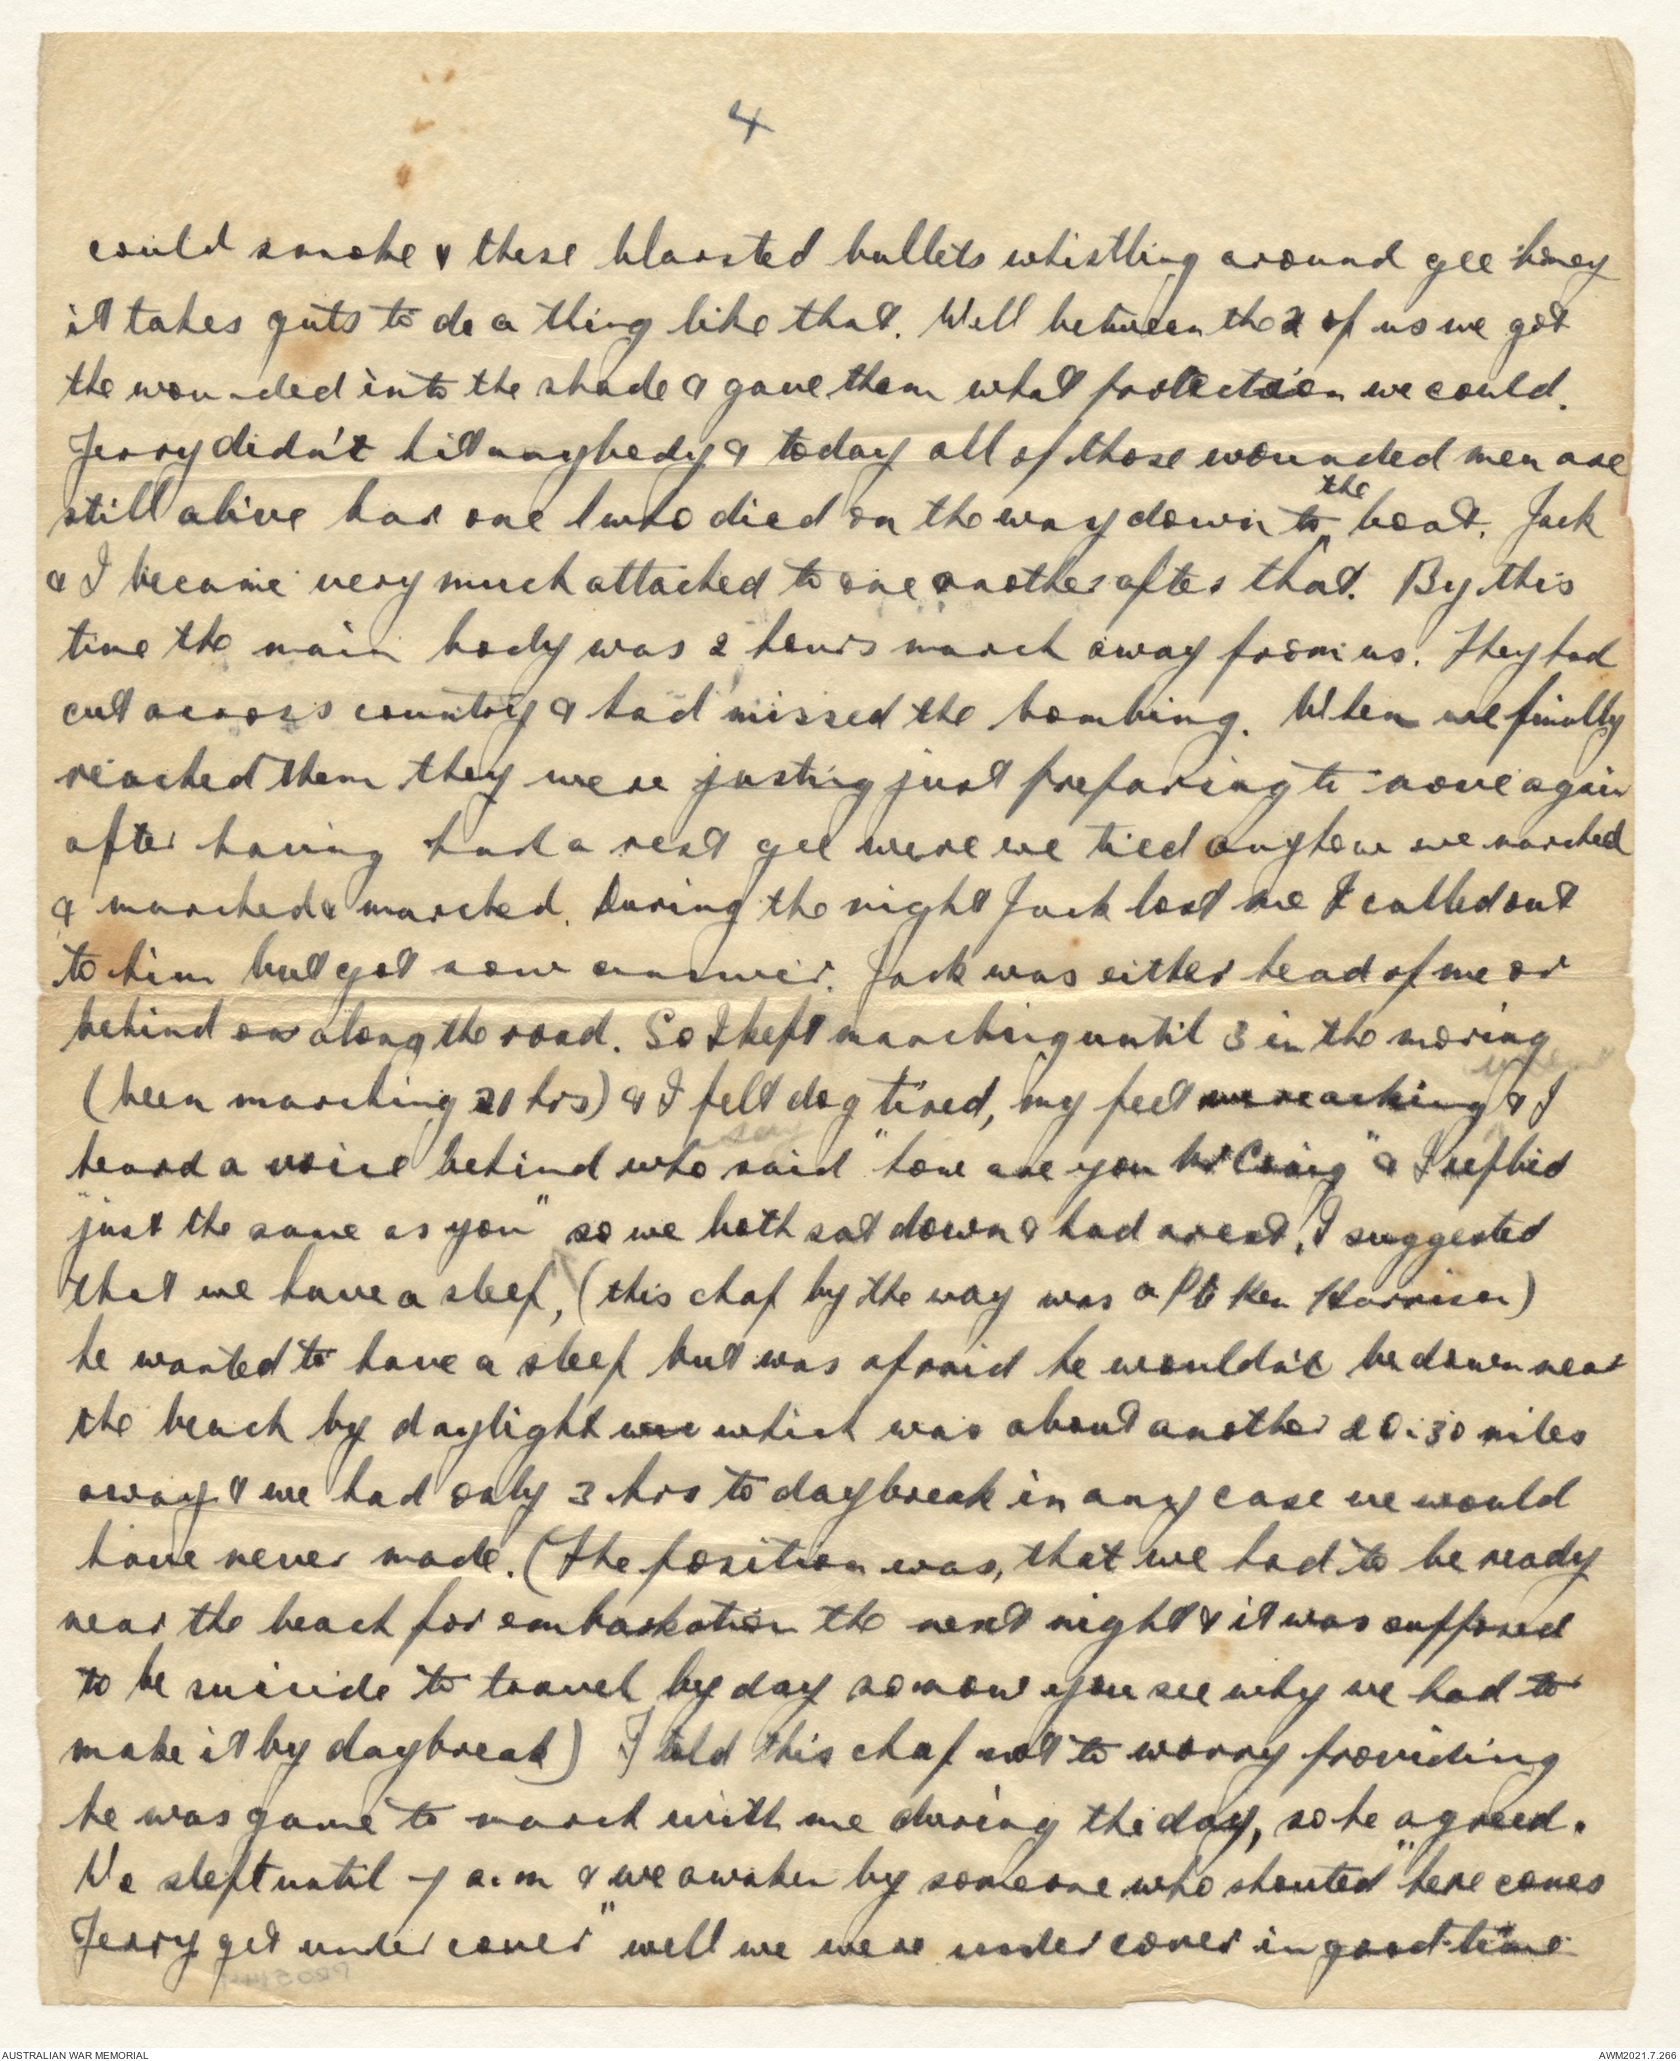 4
could smoke & these blarsted bullets whistling around gee honey
it takes guts to do a thing like that. Well between the 2 of us we got
the wounded into the shade & gave them what protection we could.
Jerry didn't hit anybody & today all of those wounded men are
still alive bar one who died on the way down to the boat. Jack
& I became very much attached to one another after that. By this
time the main body was 2 hours march away from us. They had
cut across country & had missed the bombing. When we finally
reached them they were justing just preparing to move again
after having had a rest gee were we tied anyhow we marched
& marched & marched. During the night Jack lost me I called out
to him but got now answer. Jack was either head of me or
behind on along the road. So I kept marching until 3 in the moring
(been marching 20 hrs) & I felt dog tired, my feet were aching & I
heard a voice behind who said "how are you Craig" & I replied
"just the same as you" so we both sat down & had a rest, I suggested
that we have a sleep, (this chap by the way was a Pte Ken Harrison)
he wanted to have a sleep but was afraid he wouldn't be down near
the beach by daylight which was about another 20-30 miles
away & we had only 3 hrs to daybreak in any case we would
have never made. (The position was, that we had to be ready
near the beach for embarkation the next night & it was supposed
to be suicide to travel by day so now you see why we had to
make it by daybreak) I told this chap not to worry providing
he was game to march with me during the day, so he agreed.
We slept until 7 a.m & we awaken by someone who shouted "here comes
Jerry get under cover" well we were under cover in good time
AUSTRALIAN WAR MEMORIAL
AWM2021.7.266